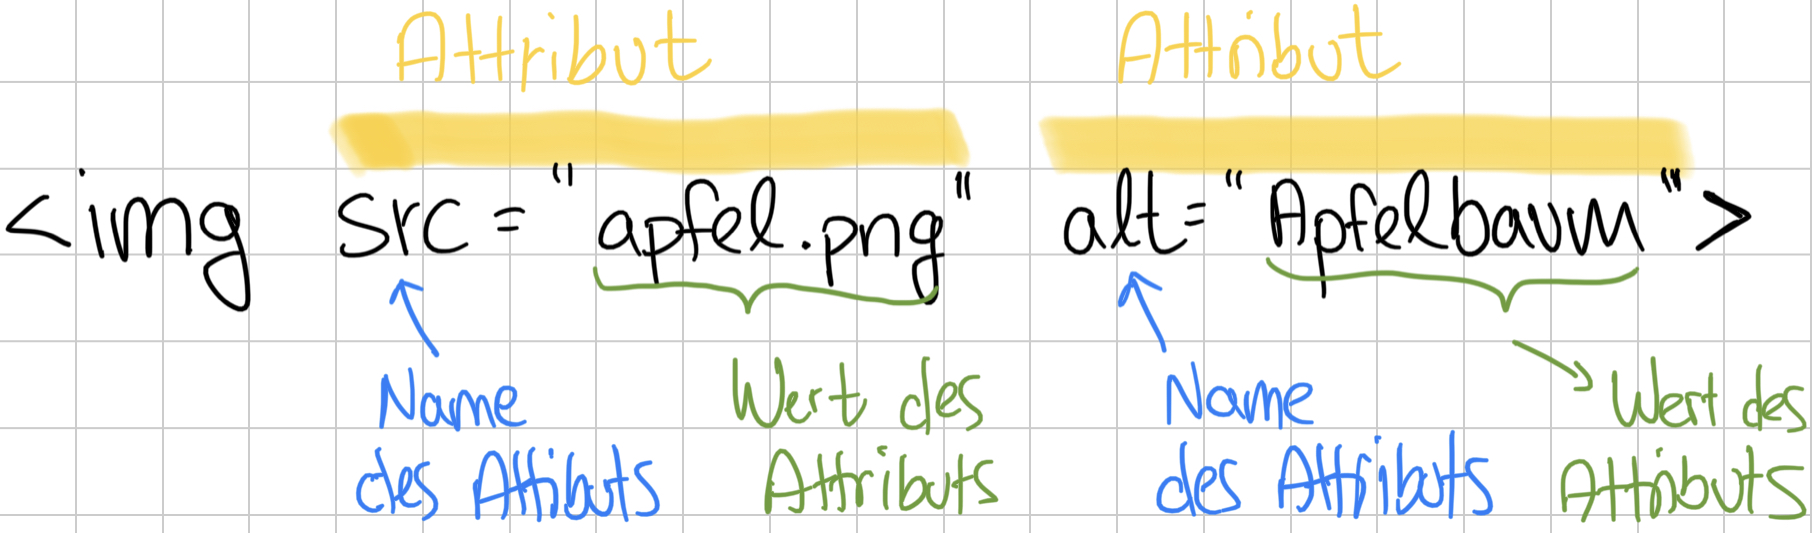 Attribut Attribut
<img src="apfel.png" alt="Apfelbaum">
Name
des Attibuts
Wert des
Attributs
Name
des Attributs
Wert des
Attributs